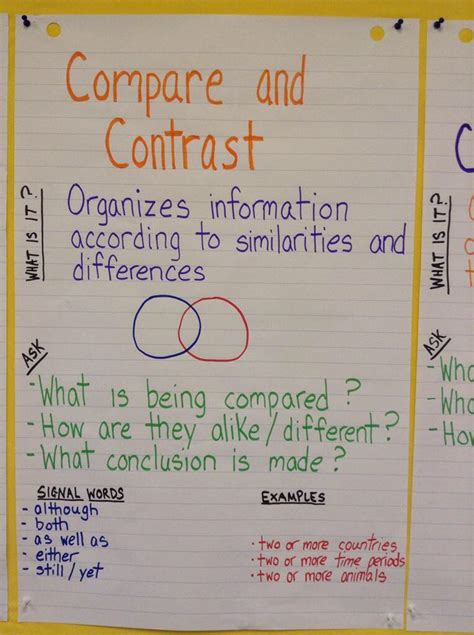 Compare and
Contrast
WHAT IS IT?
Organizes information
according to similarities and
differences
ASK
-What is being compared?
-How are they alike/different?
-What conclusion is made?
SIGNAL WORDS
- although
- both
- as well as
- either
- still/yet
EXAMPLES
• two or more countries
• two or more time periods
• two or more animals
C
WHAT IS IT?
ASK
-Who
-Wha
-Ho